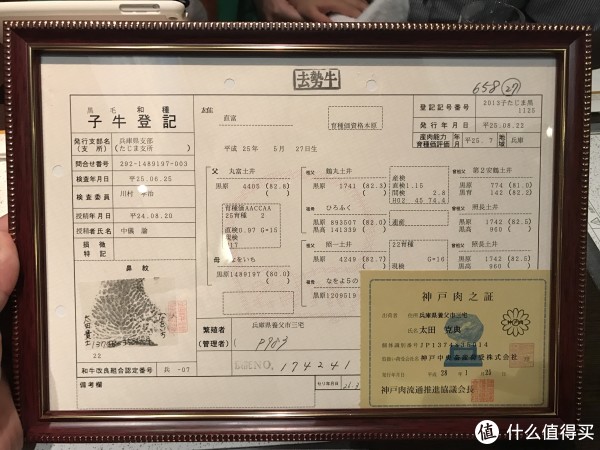 去勢牛
658 27
黒毛和種
子牛登記
名号
直富
育種価資格本原
平成 25年 5月 27日生
登記記号番号 2013子たじま黒 1125
発行年月日 平25.08.22
産肉能力育種価評価 年月 平25.7 地域 兵庫
発行支部名(支所) 兵庫県支部(たじま支所)
問合せ番号 292-1489197-003
検査年月日 平25.06.25
検査委員 川村
授精年月日 平24.08.20
授精者氏名 中儀 諭
損徴特記
鼻紋
22
父 丸富土井
黒原 4405 (82.8)
育種価AACCAA
25育種 2
直検0.97 G=15
現検
母
黒原1489197 (80.0)
祖父 鶴丸土井
黒原 1741 (82.3)
祖母 ひろふく
黒原 893507 (82.0)
黒高 141339
祖父 照一土井
黒原 4249
祖母 なをよ5の
黒原1209519
産検
直検1.15
間検 2.8
H02 45 74.4
遺産
22育種
G=10
現検
曾祖父 第2安鶴土井
黒原 774 (81.0)
黒育 142 (82.2)
曾祖父 照長土井
黒原 1742 (82.5)
黒高 960
曾祖父 照長土井
黒原 1742 (82.5)
黒高 960
繁殖者(管理者) 兵庫県養父市三宅
P983
174241
セリ年月日
和牛改良組合認定番号 兵 -07
備考欄
神戸肉之証
出荷者 住所 兵庫県養父市三宅
太田 克典
個体識別番号
神戸中央畜産荷受株式会社
平成 28年 1月 25日
神戸肉流通推進協議会長
值 什么值得买